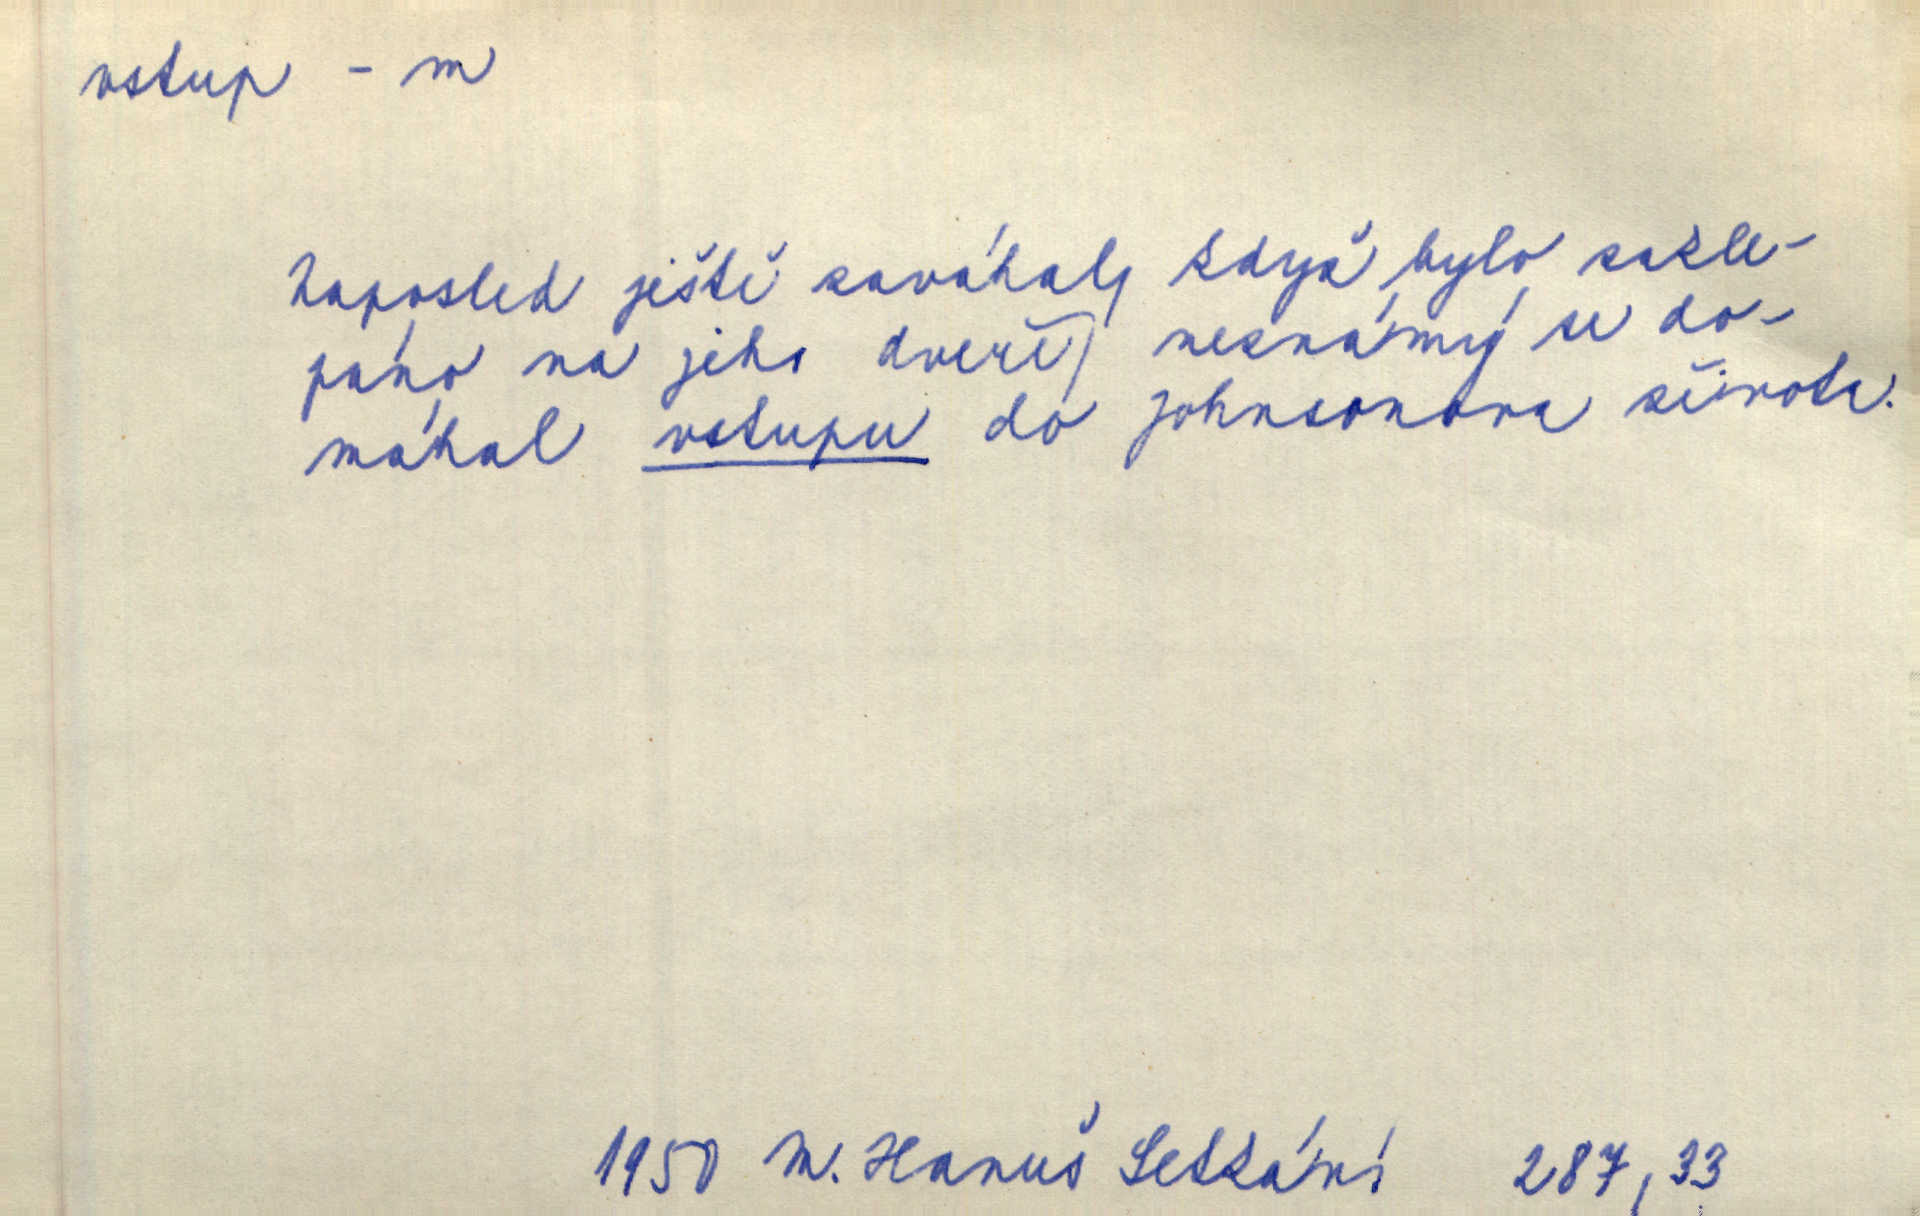 vstup - m
Naposled ještě zaváhal, když bylo zakle-
páno na jeho dveře, neznámý se do-
máhal vstupu do Johnsonova života.
1950 M. Hanuš Setkání 287, 33